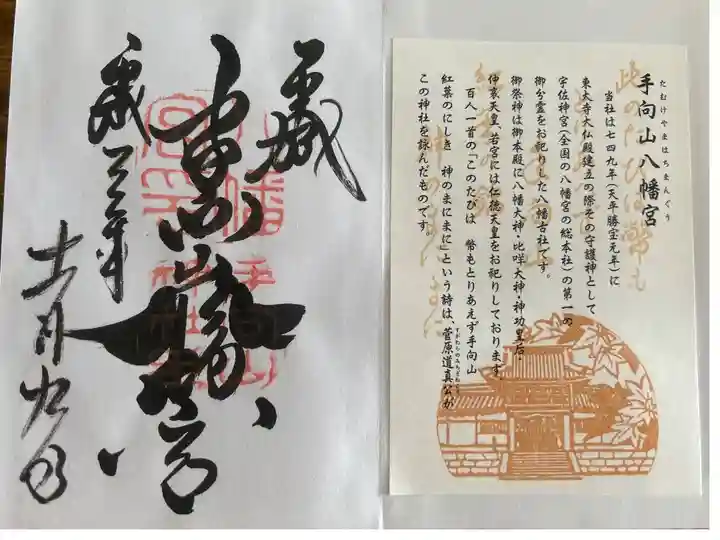 手向山八幡宮
たむけやまはちまんぐう
当社は七四九年(天平勝宝元年)に
東大寺大仏殿建立の際その守護神として
宇佐神宮(全国の八幡宮の総本社)の第一の
御分霊をお祀りした八幡古社です。
御祭神は御本殿に八幡大神・比咩大神・神功皇后・
仲哀天皇、若宮には仁徳天皇をお祀りしております。
百人一首の「このたびは 幣もとりあえず手向山
紅葉のにしき 神のまにまに」という詩は、菅原道真公が
すがわらのみちざねこう
この神社を詠んだものです。
奉拝
手向山八幡宮